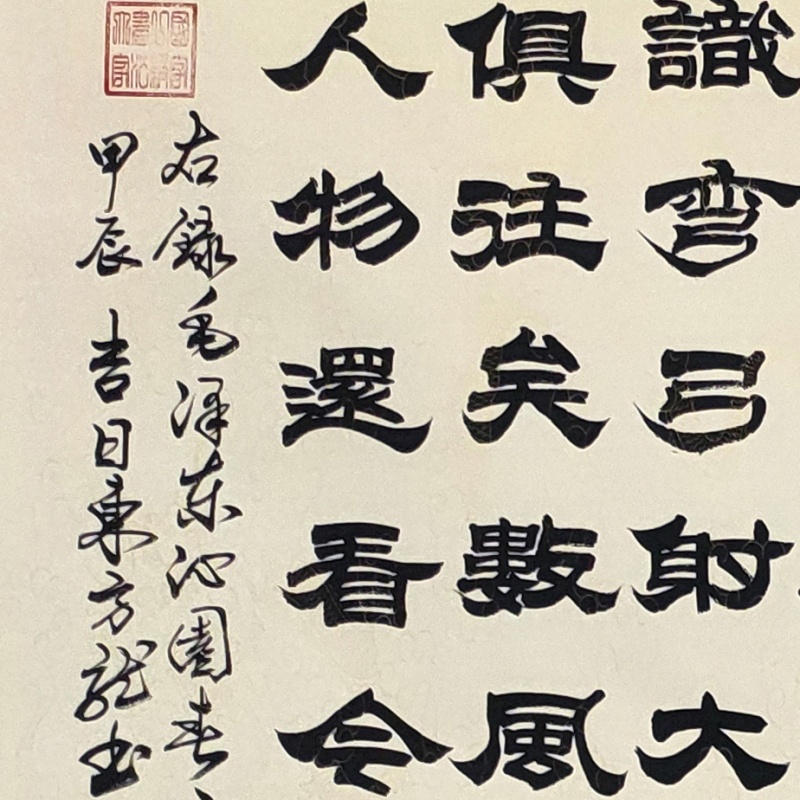 識彎弓射大
俱往矣數風
人物還看今
右錄毛泽东沁園春
甲辰吉日東方龍书